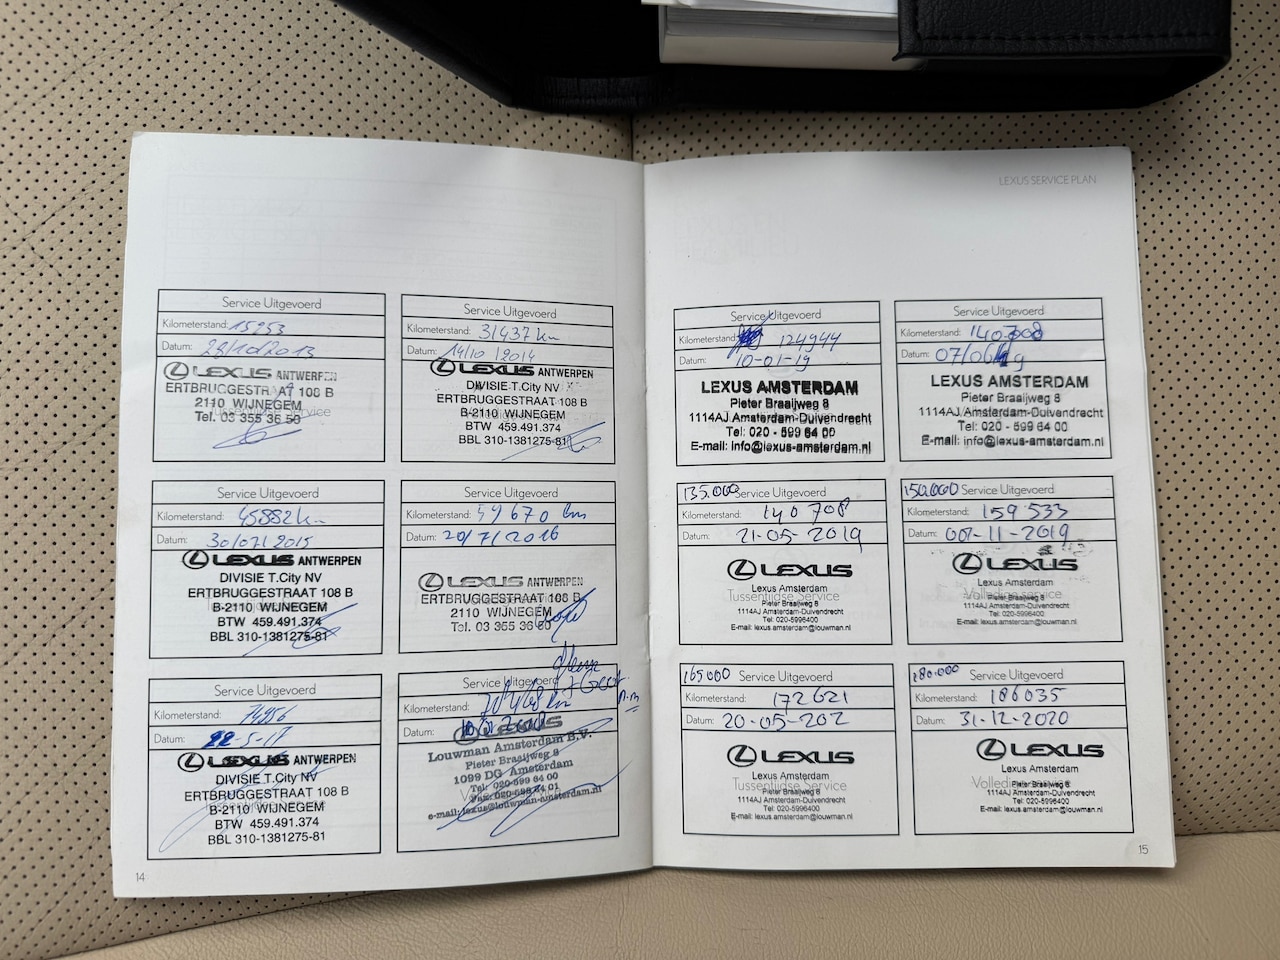 Service Uitgevoerd
Kilometerstand: 15253
Datum: 28/10/2013
LEXUS ANTWERPEN
ERTBRUGGESTRAAT 108 B
2110 WIJNEGEM
Tel. 03 355 36 50
Service Uitgevoerd
Kilometerstand: 31437 km
Datum: 14/10/2014
LEXUS ANTWERPEN
DIVISIE T.City NV
ERTBRUGGESTRAAT 108 B
B-2110 WIJNEGEM
BTW 459.491.374
BBL 310-1381275-81
Service Uitgevoerd
Kilometerstand: 45882 km
Datum: 30/07/2015
LEXUS ANTWERPEN
DIVISIE T.City NV
ERTBRUGGESTRAAT 108 B
B-2110 WIJNEGEM
BTW 459.491.374
BBL 310-1381275-81
Service Uitgevoerd
Kilometerstand: 59670 km
Datum: 20/7/2016
LEXUS ANTWERPEN
ERTBRUGGESTRAAT 108 B
2110 WIJNEGEM
Tel. 03 355 36 50
Service Uitgevoerd
Kilometerstand: 74956
Datum: 22-5-17
LEXUS ANTWERPEN
DIVISIE T.City NV
ERTBRUGGESTRAAT 108 B
B-2110 WIJNEGEM
BTW 459.491.374
BBL 310-1381275-81
Service Uitgevoerd
Kilometerstand:
Datum:
LEXUS
Louwman Amsterdam B.V.
Pieter Braaijweg 8
1099 DG Amsterdam
Tel: 020-599 64 00
Fax: 020-599 64 01
e-mail: lexus@louwman-amsterdam.nl
14
LEXUS SERVICE PLAN
Service Uitgevoerd
Kilometerstand: 124944
Datum: 10-01-19
LEXUS AMSTERDAM
Pieter Braaijweg 8
1114AJ Amsterdam-Duivendrecht
Tel: 020 - 599 64 00
E-mail: info@lexus-amsterdam.nl
Service Uitgevoerd
Kilometerstand: 140708
Datum: 07/06/19
LEXUS AMSTERDAM
Pieter Braaijweg 8
1114AJ Amsterdam-Duivendrecht
Tel: 020 - 599 64 00
E-mail: info@lexus-amsterdam.nl
135.000 Service Uitgevoerd
Kilometerstand: 140708
Datum: 21-05-2019
LEXUS
Lexus Amsterdam
Tussentijdse Service
Pieter Braaijweg 8
1114AJ Amsterdam-Duivendrecht
Tel: 020-5996400
E-mail: lexus.amsterdam@louwman.nl
150.000 Service Uitgevoerd
Kilometerstand: 159533
Datum: 007-11-2019
LEXUS
Lexus Amsterdam
Volledige service
Pieter Braaijweg 8
1114AJ Amsterdam-Duivendrecht
Tel: 020-5996400
E-mail: lexus.amsterdam@louwman.nl
165000 Service Uitgevoerd
Kilometerstand: 172621
Datum: 20-05-202
LEXUS
Lexus Amsterdam
Tussentijdse Service
Pieter Braaijweg 8
1114AJ Amsterdam-Duivendrecht
Tel: 020-5996400
E-mail: lexus.amsterdam@louwman.nl
180.000 Service Uitgevoerd
Kilometerstand: 186035
Datum: 31-12-2020
LEXUS
Lexus Amsterdam
Volledige service
Pieter Braaijweg 8
1114AJ Amsterdam-Duivendrecht
Tel: 020-5996400
E-mail: lexus.amsterdam@louwman.nl
15